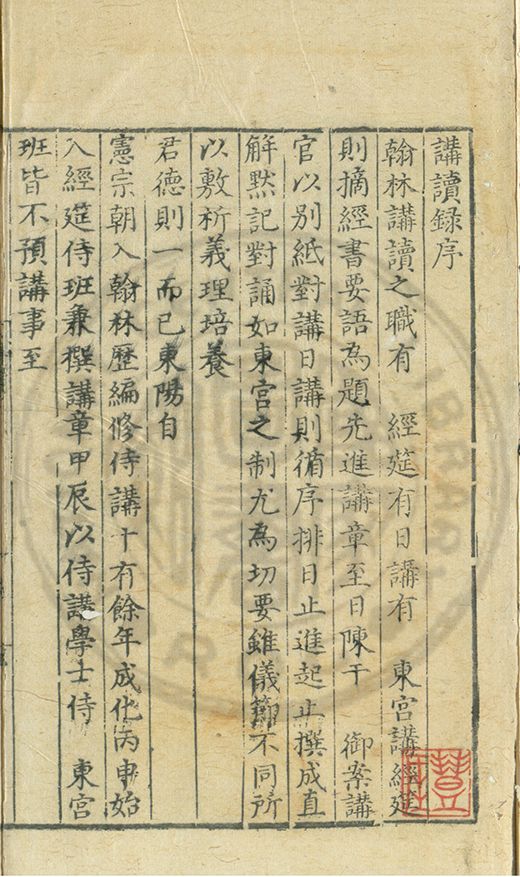 講讀錄序
翰林講讀之職有　經筵有日講有　東宮講經筵
則摘經書要語為題先進講章至日陳于　御案講
官以別紙對講日講則循序排日止進起止撰成直
解默記對誦如東宮之制尤為切要雖儀節不同所
以敷析義理培養
君德則一而已東陽自
憲宗朝入翰林歷編修侍講十有餘年成化丙申始
入經筵侍班兼撰講章甲辰以侍講學士侍　東宮
班皆不預講事至